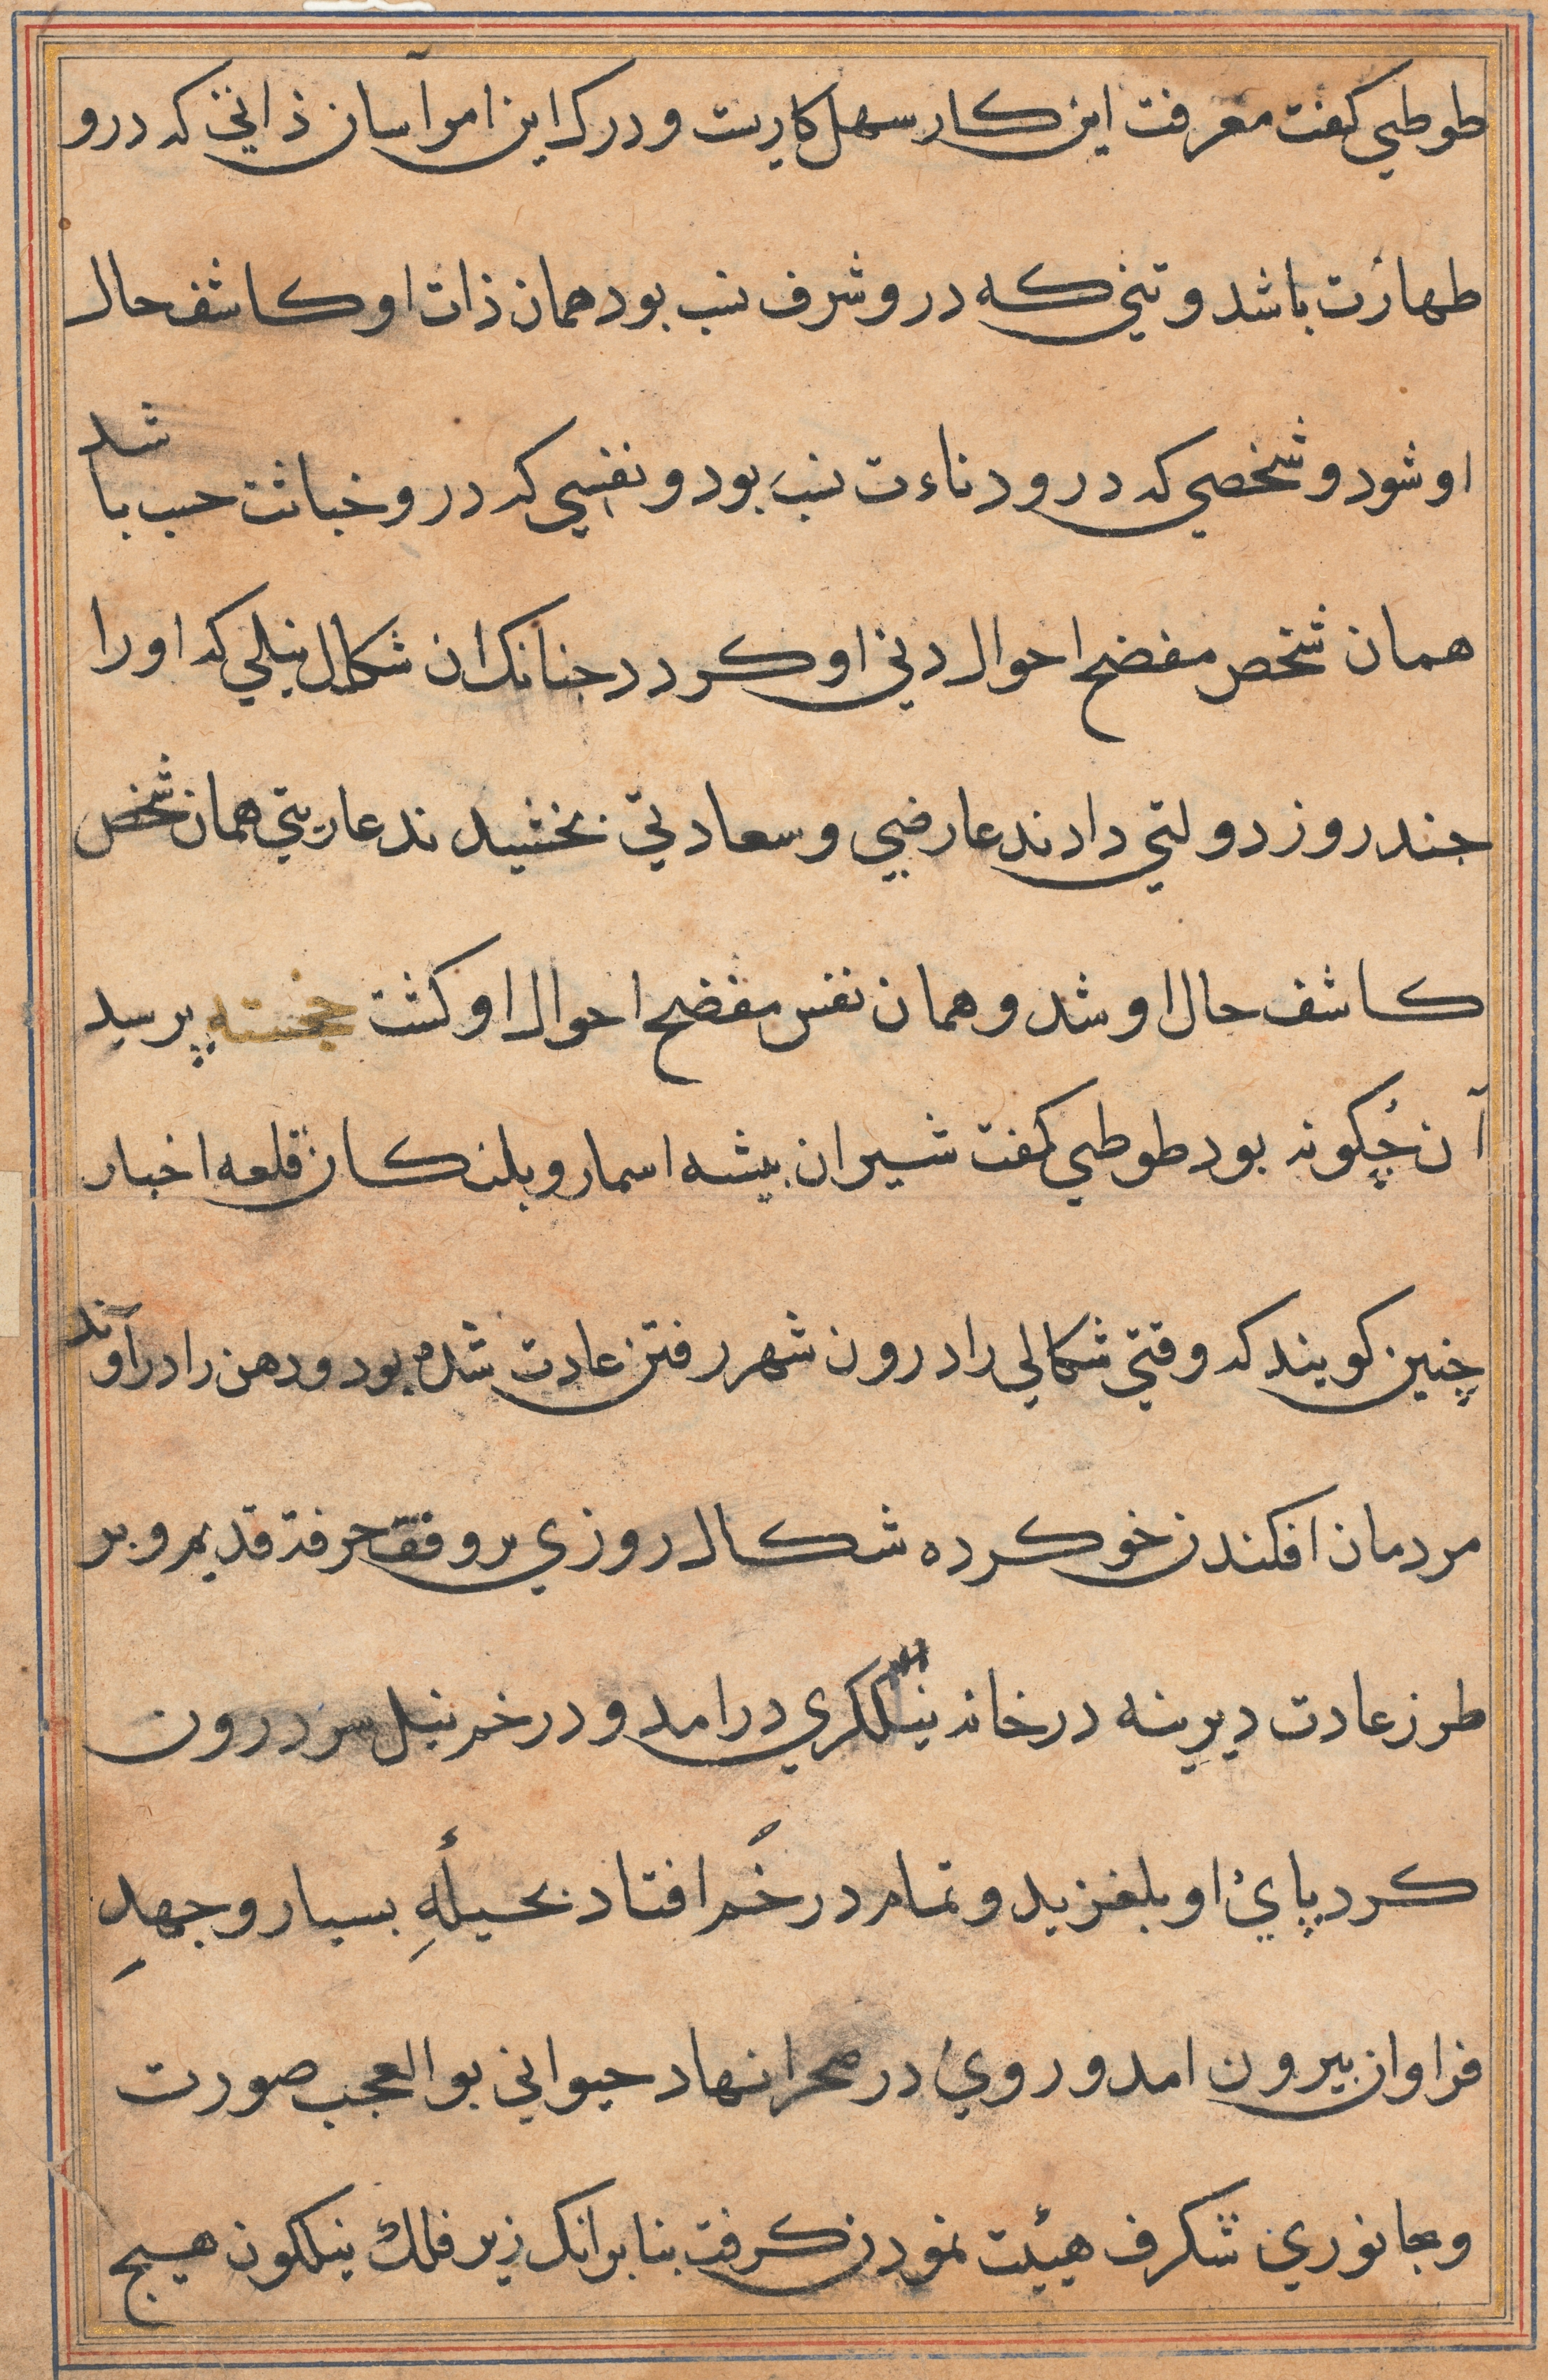 طوطي كفت معرفت اين كار سهل كاريست و درك اين امر آسان ذاتي كه درو
طهارت باشد و تني كه درو شرف نسب بود همان ذات او كاشف حال
او شود و شخصي كه درو دناءت نسب بود و نفسي كه درو خباثت حسب باشد
همان شخص مفضح احوال دني او كردد جنانك ان شكال نيلي كه او را
جند روز دولتي دادند عارضي و سعادتي بخشيدند عاريتي همان شخص
كاشف حال او شد و همان نفس مفضح احوال او كشت خجسته پرسيد
آن چكونه بود طوطي كفت شيران بيشه اسمار و بلنكان قلعه اخبار
چنين كويند كه وقتي شكالي را درون شهر رفتن عادت شده بود و دهن را در آوند
مردمان افكندن خو كرده شكال روزي بر وفق حرفة قديم و بر
طرز عادت ديرينه در خانه نيلكري درامد و در خم نيل سر درون
كرد پاي او بلغزيد و تمام در خم افتاد بحيلهٔ بسيار و جهدِ
فراوان بيرون امد و روي در صحرا نهاد حيواني بوالعجب صورت
و جانوري شكرف هيئت نمودن كرفت بنابر انك زير فلك نيلكون هيج